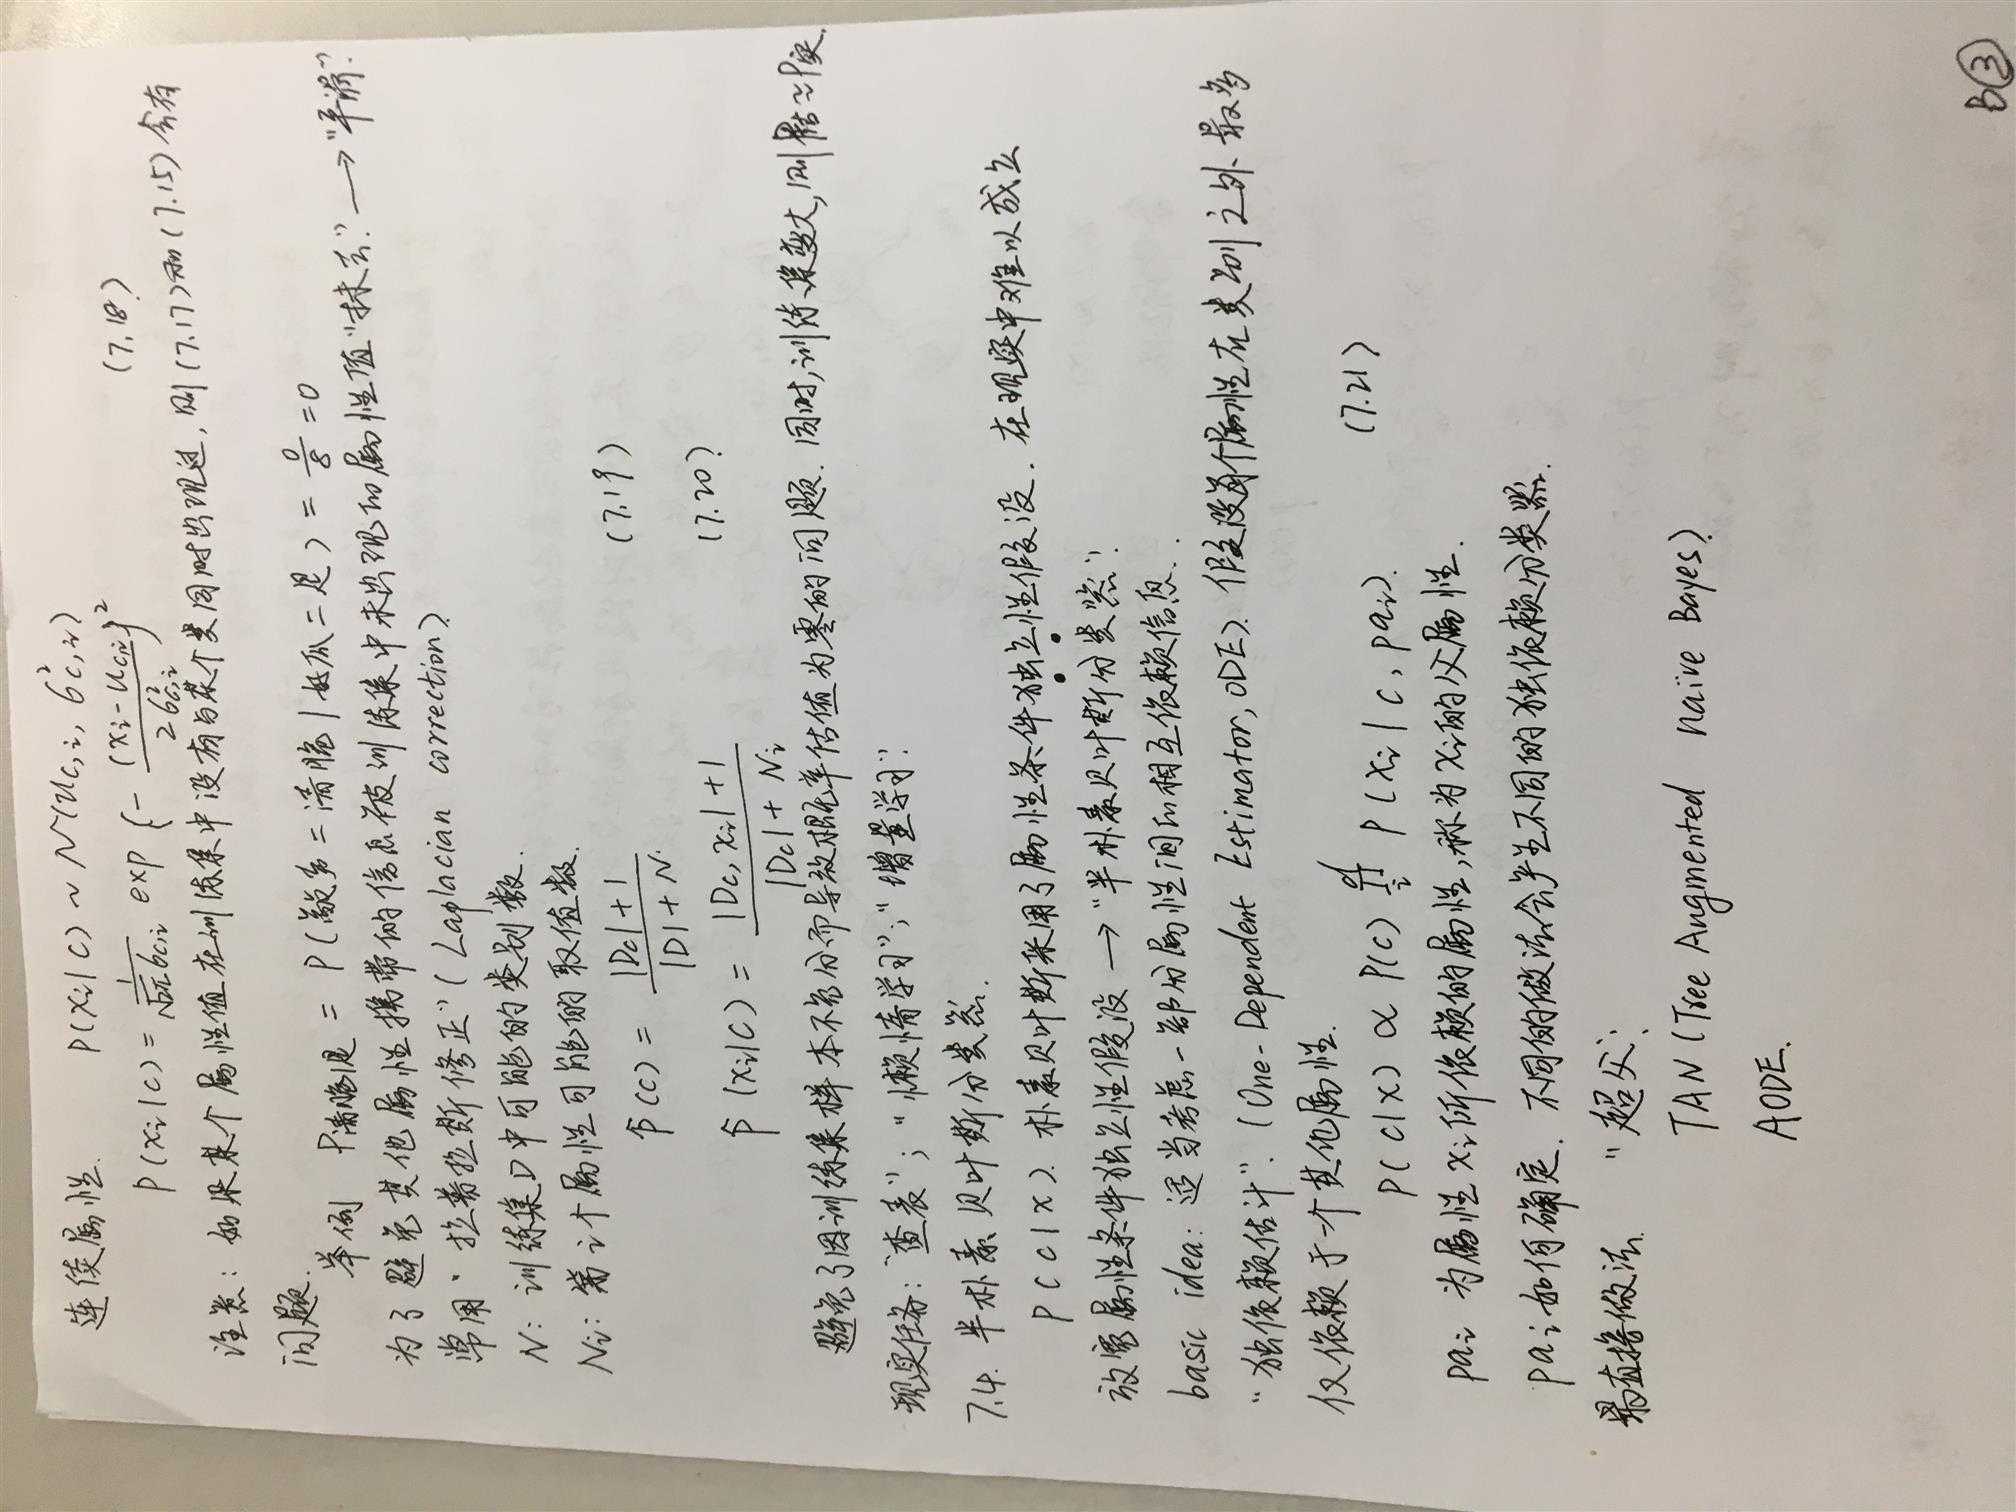 连续属性. P(xi|c) ~ N(μc,i, σ²c,i)
P(xi|c) = 1/(√2π σc,i) exp{-(xi-μc,i)²/(2σ²c,i)} (7.18)
注意: 如果某个属性值在训练集中没有与某个类同时出现过, 则(7.17)和(7.15)会有
问题.
举例 P清脆|是 = P(敲声=清脆|好瓜=是) = 0/8 = 0
为了避免其他属性携带的信息被训练集中未出现的属性值"抹去". → "平滑".
常用"拉普拉斯修正"(Laplacian correction)
N: 训练集D中可能的类别数.
Ni: 第i个属性可能的取值数.
P̂(c) = (|Dc|+1)/(|D|+N) (7.19)
P̂(xi|c) = (|Dc,xi|+1)/(|Dc|+Ni) (7.20)
避免了因训练集样本不充分而导致概率估值为零的问题. 同时, 训练集变大, 则P估≈P实.
现实任务: "查表"; "懒惰学习"; "增量学习".
7.4. 半朴素贝叶斯分类器.
P(c|x). 朴素贝叶斯采用了属性条件独立性假设. 在现实中难以成立
放宽属性条件独立性假设 → "半朴素贝叶斯分类器".
basic idea: 适当考虑一部分属性间的相互依赖信息.
"独依赖估计". (One-Dependent Estimator, ODE). 假设每个属性在类别之外最多
仅依赖于一个其他属性.
P(c|x) ∝ P(c) ∏ᵢᵈ P(xi|c, pai). (7.21)
pai 为属性xi所依赖的属性, 称为xi的父属性.
pai如何确定. 不同的做法会产生不同的独依赖分类器.
最直接做法. "超父".
TAN (Tree Augmented naïve Bayes).
AODE.
B③